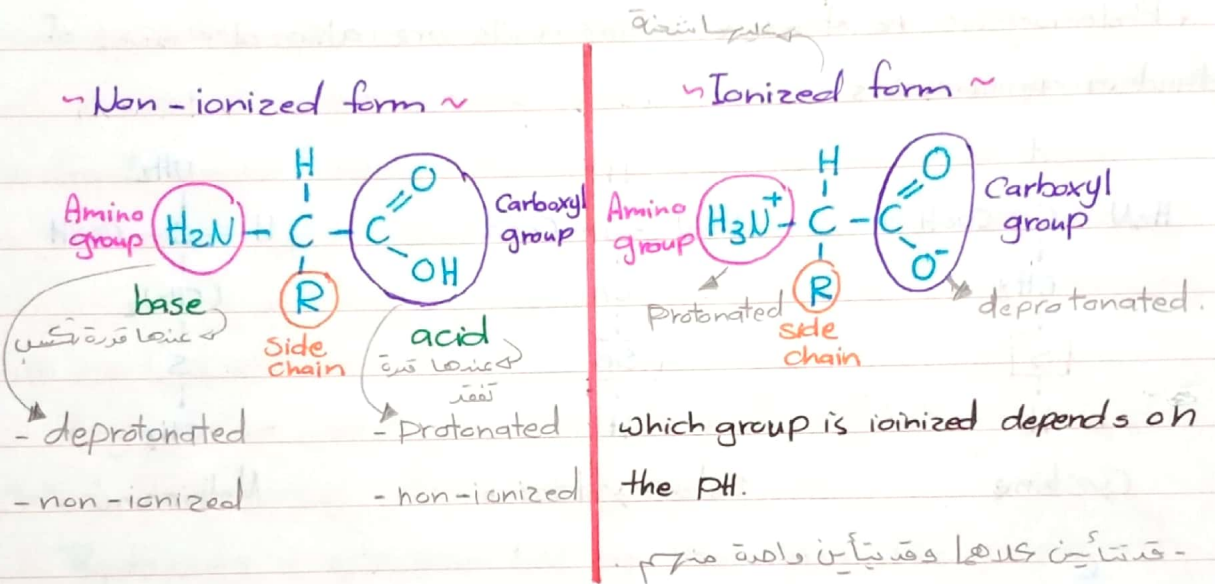 ~ Non-ionized form ~
H
Amino group
H₂N - C - C
O
OH
Carboxyl group
base
R
Side chain
acid
عندها قدرة تكسب
عندها قدرة
تفقد
- deprotonated
- Protonated
- non-ionized
- non-ionized
عليها شحنة
~ Ionized form ~
H
Amino group
H₃N⁺ - C - C
O
O⁻
Carboxyl group
Protonated
R
side chain
deprotonated.
which group is ioinized depends on
the pH.
- قد تتأين كلاهما وقد يتأين واحدة منهم.